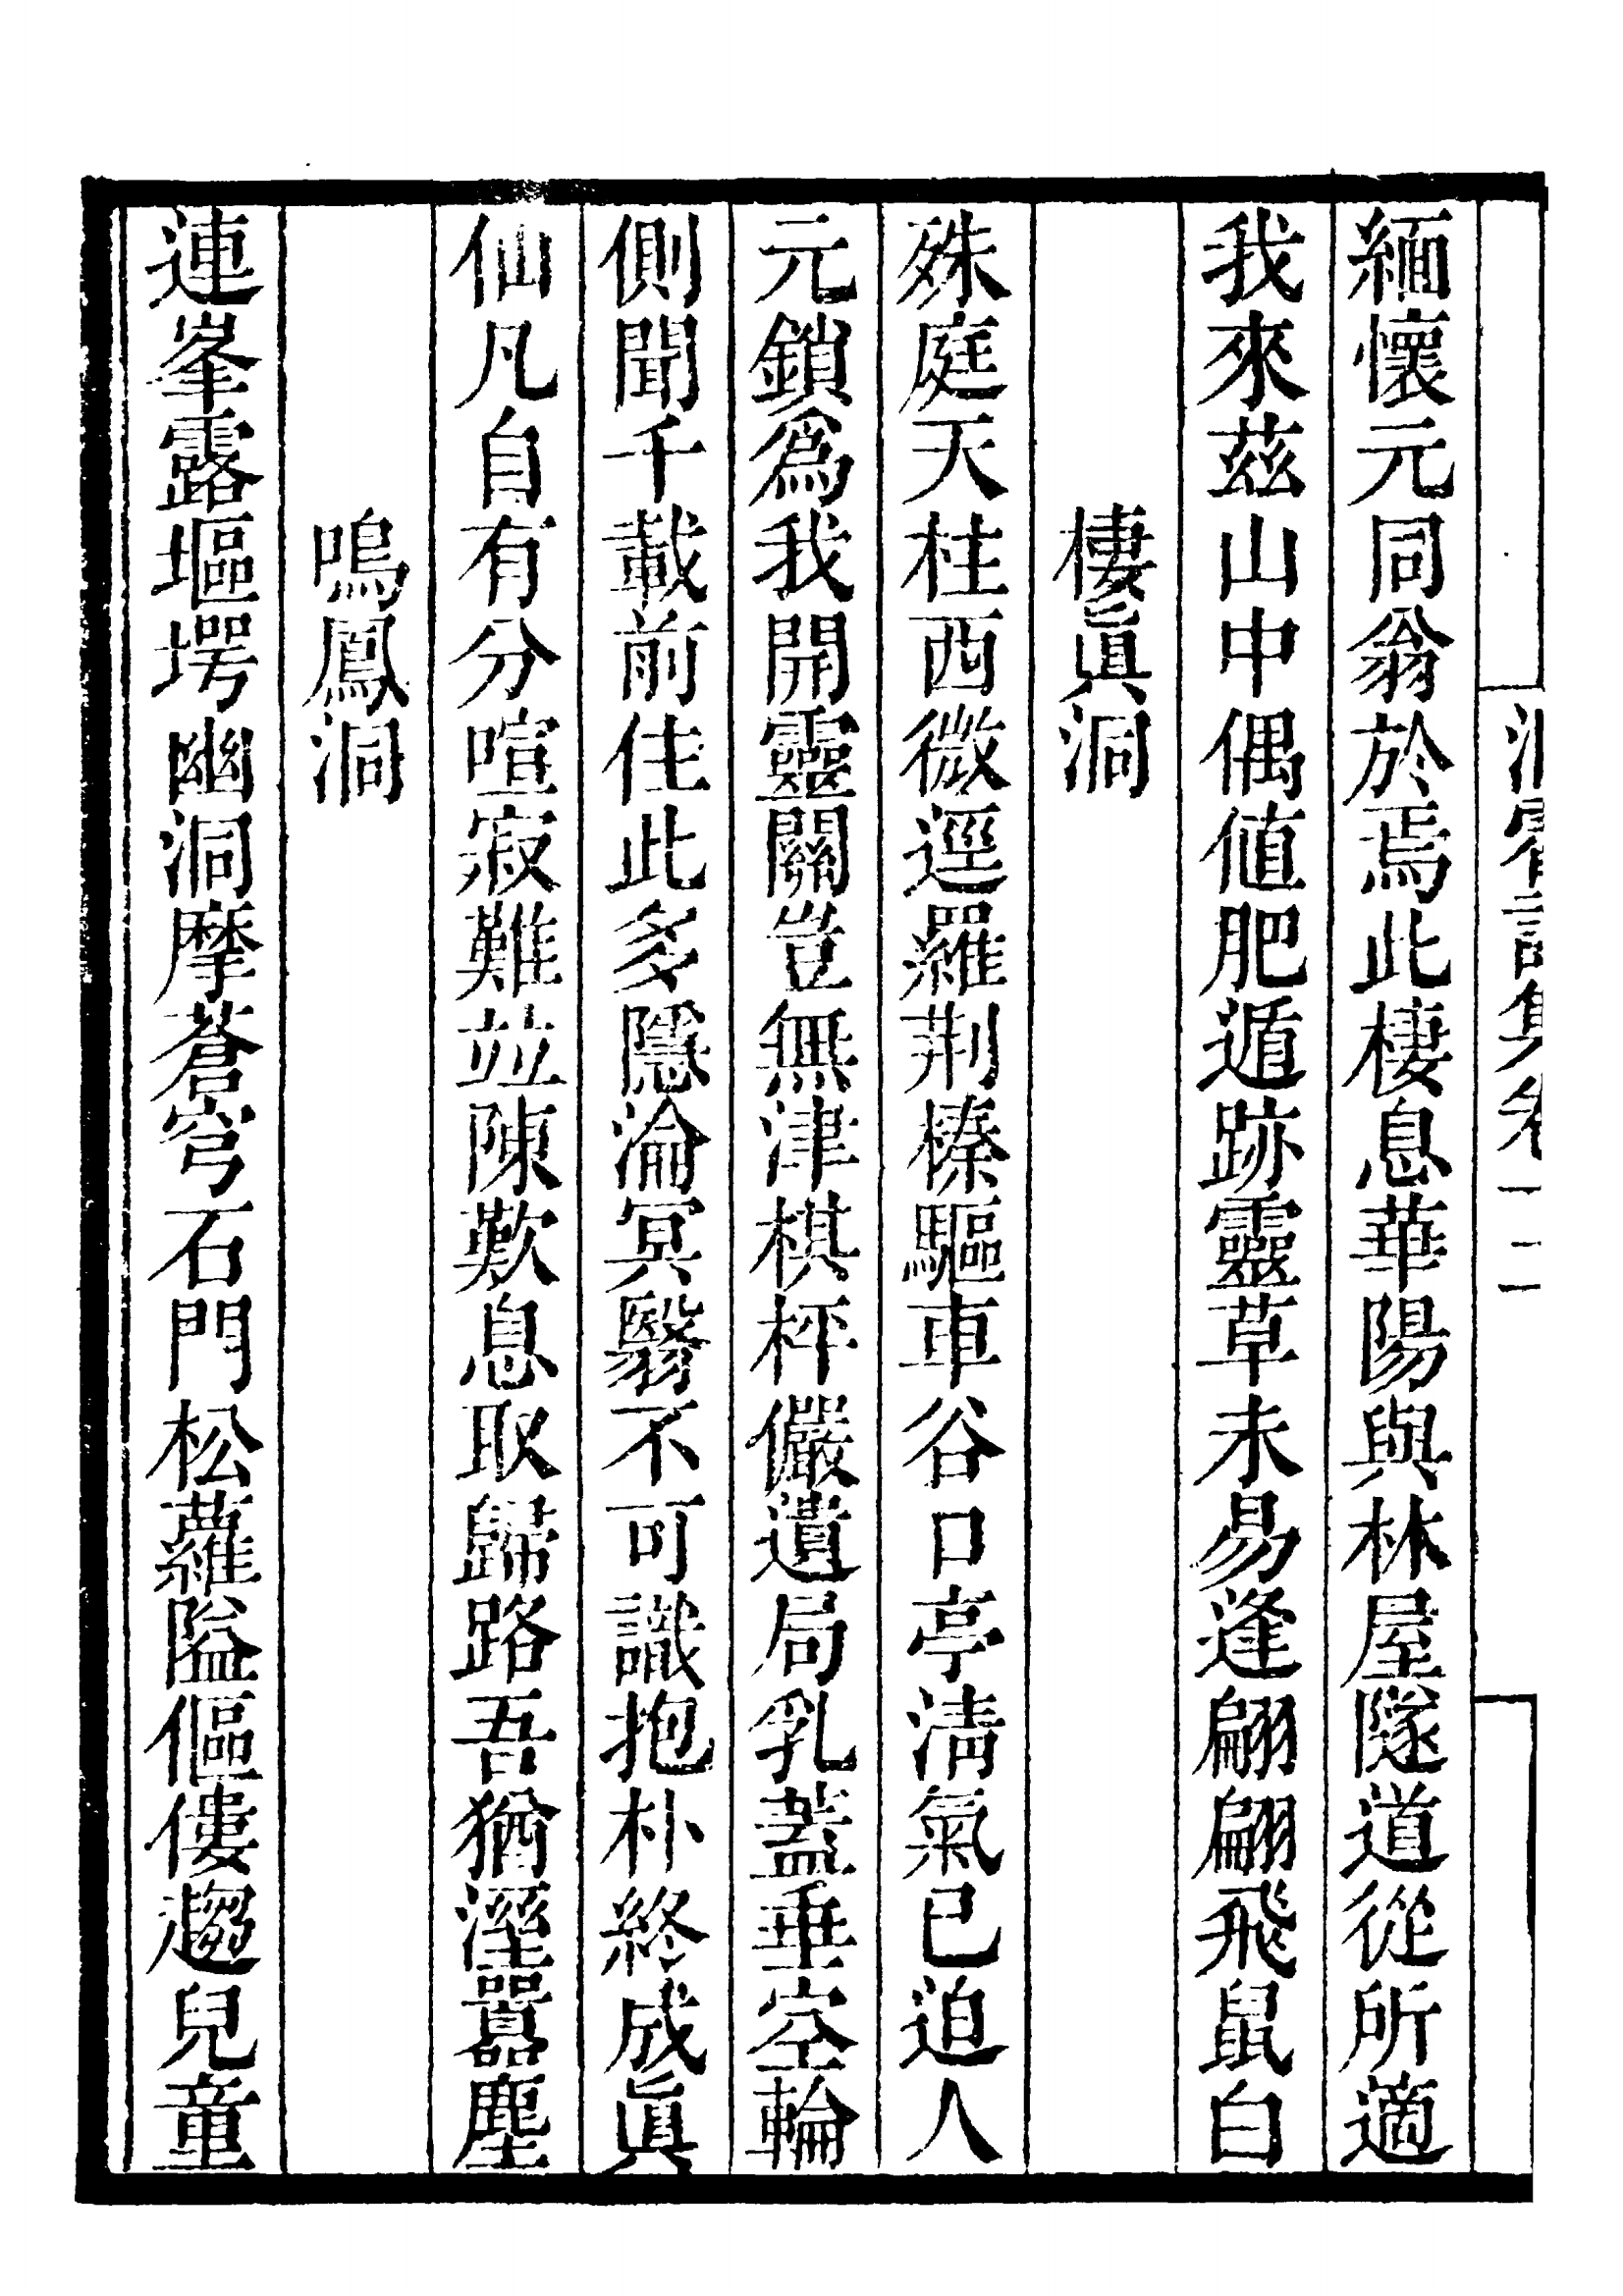 緬懷元同翁於焉此棲息華陽與林屋隧道從所適
我來茲山中偶値肥遁跡靈草未易逢翩翩飛鼠白
棲眞洞
殊庭天柱西微逕羅荆榛驅車谷口亭淸氣已迫人
元鎖爲我開靈關豈無津棋枰儼遺局乳蓋垂空輪
側聞千載前住此多隱淪冥翳不可識抱朴終成眞
仙凡自有分喧寂難竝陳歎息取歸路吾猶溼囂塵
鳴鳳洞
連峯露堀堮幽洞摩蒼穹石門松蘿隘傴僂趨兒童